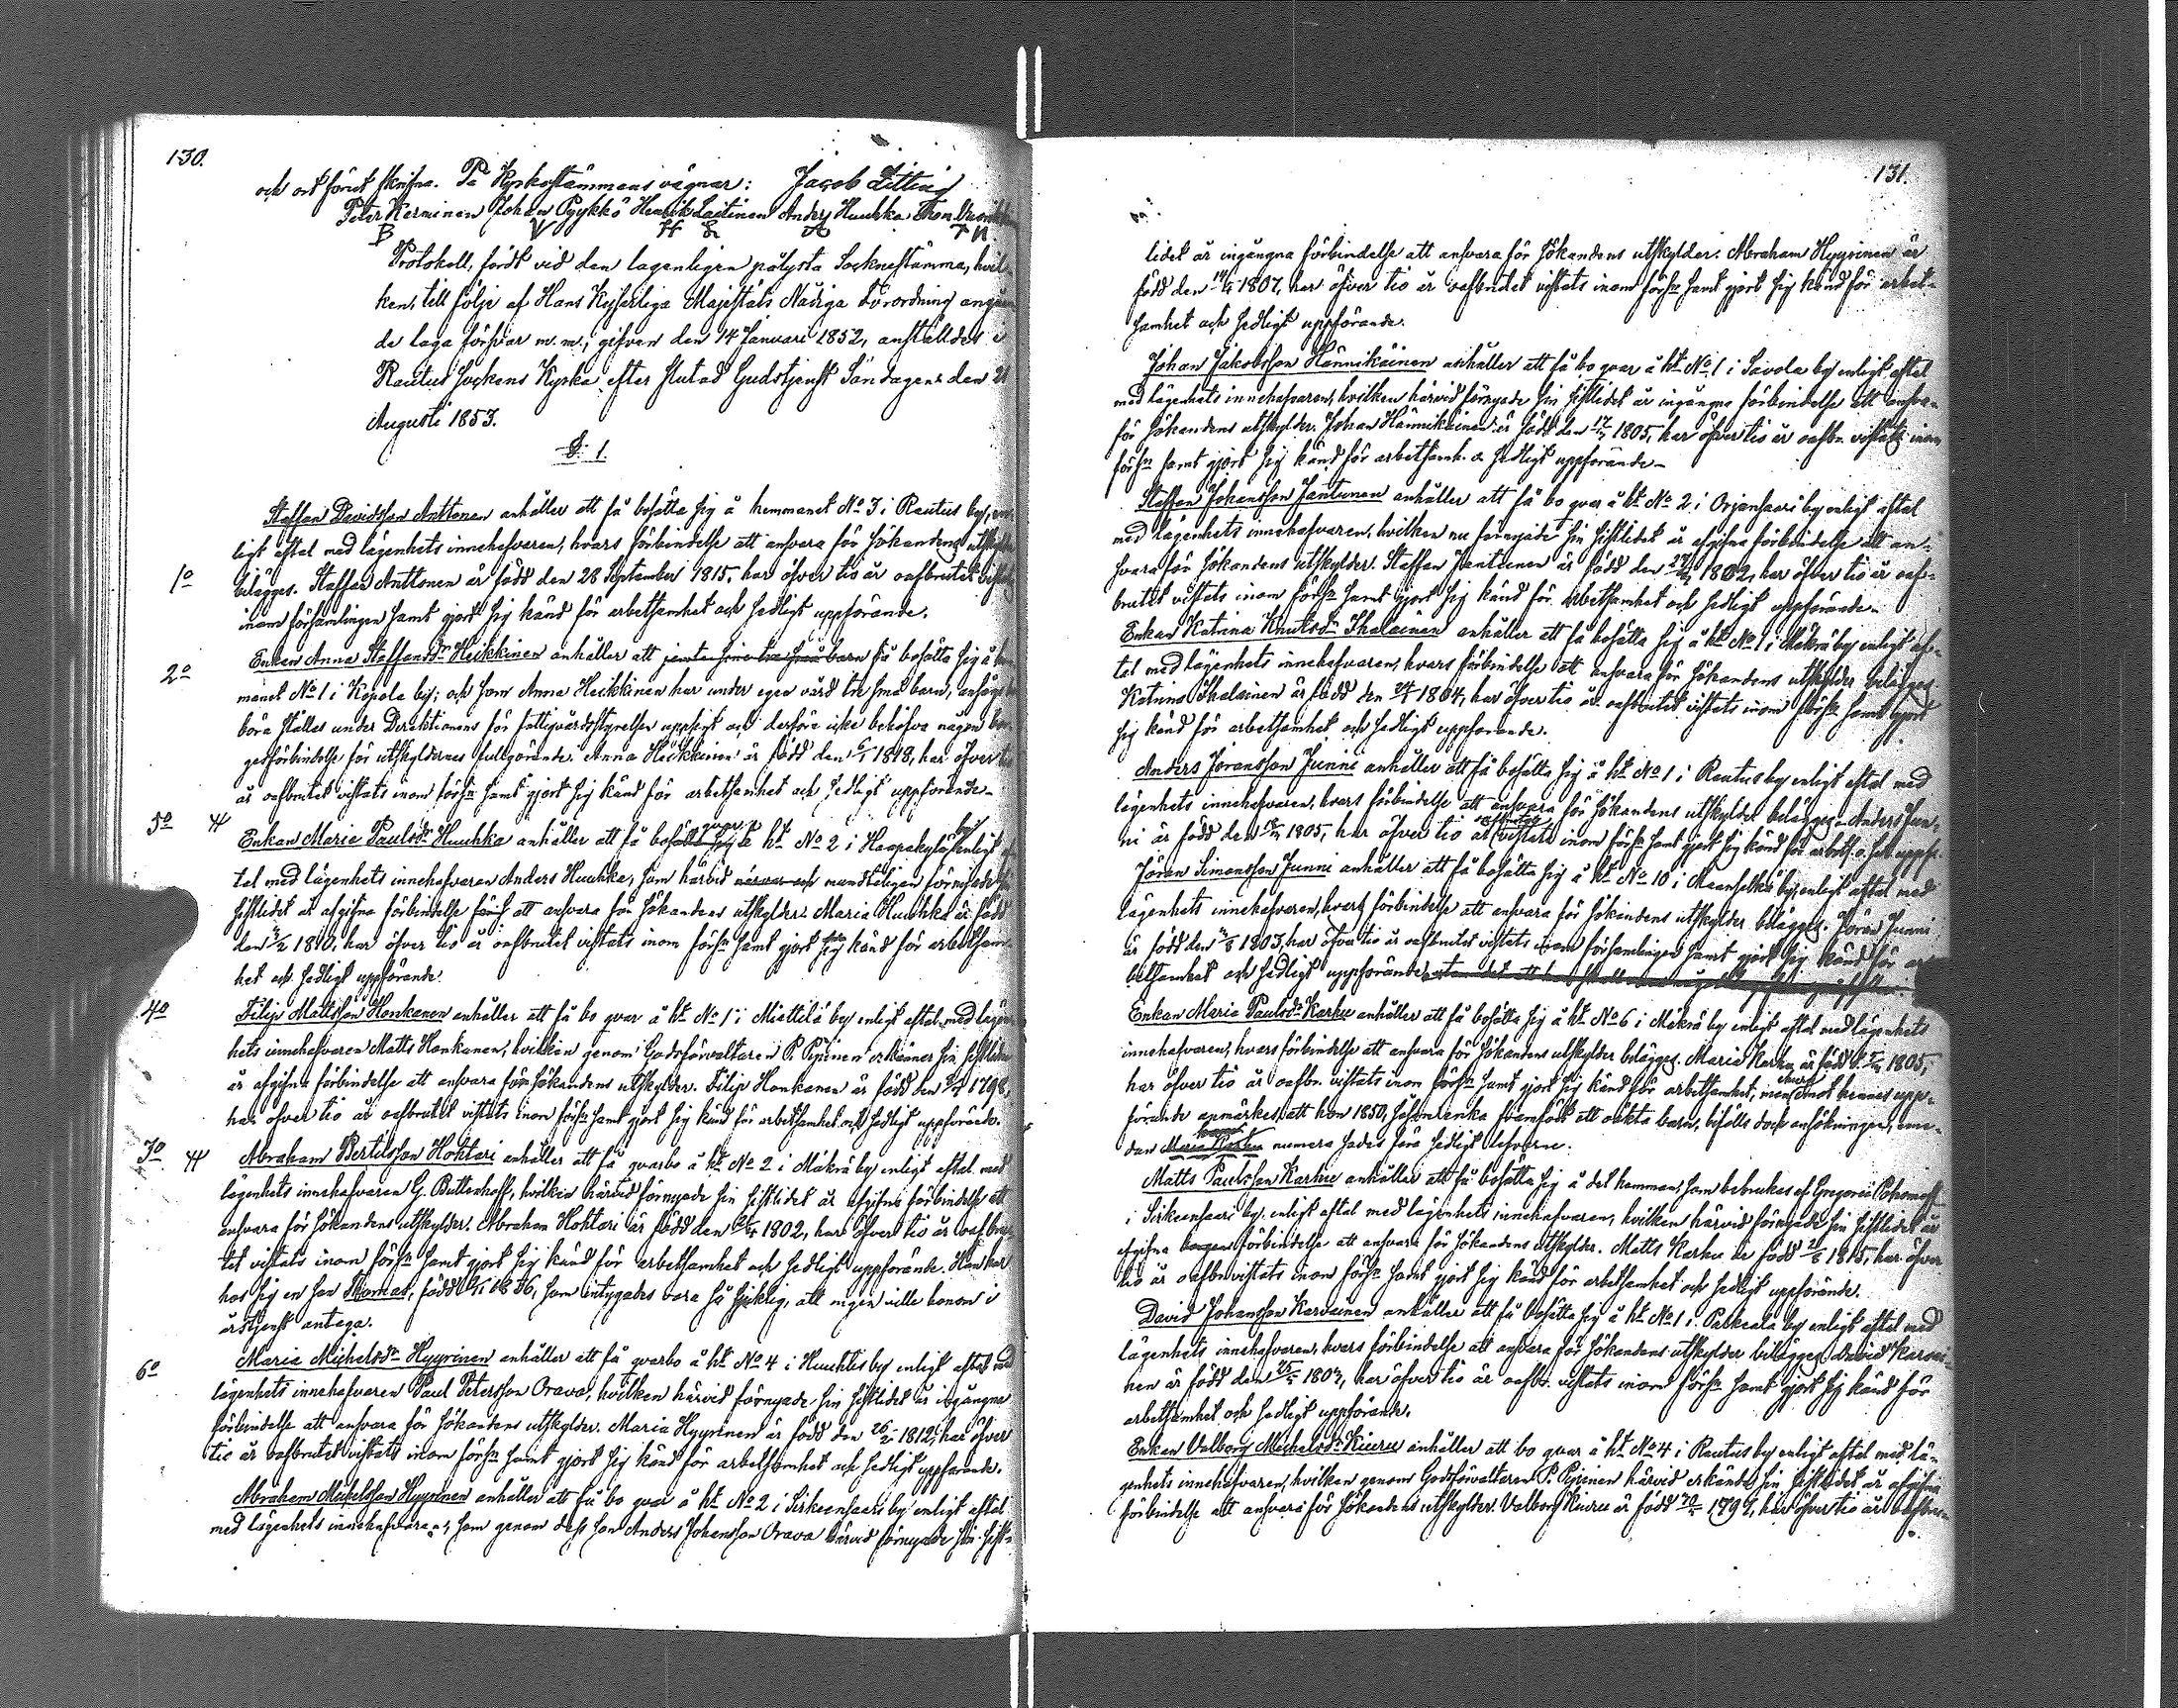 130.
och ort förut skrifna. På Kyrkostämmans vägnar: Jacob Zitting
Peter Kerminen Johan Pyykkö Henrik Laitinen Anders Huuhka Thom.
Protokoll, fördt vid den lagenligen pålysta Sockenstämma, hvil-
ken, till följe af Hans Kejserliga Majestäts Nådiga Förordning angåen
de laga försvar m.m., gifven den 14 Januari 1852, anställdes i
Rautus Sockens Kyrka efter slutad Gudstjenst Söndagen den 21
Augusti 1853.
§ 1.
Staffan Davidsson Anttonen anhåller att få bosätta sig å hemmanet No 3 i Rautus by, en-
ligt aftal med lägenhets innehafvaren, hvars förbindelse att ansvara för sökandens utskylder
1o
bilägges. Staffan Anttonen är född den 28 September 1815, har öfver tio år oafbrutet vistats
inom församlingen samt gjort sig känd för arbetsamhet och sedligt uppförande.
Enkan Anna Staffansdr Heikkinen anhåller att jemte sina tre små barn få bosätta sig å hem
2o
manet No 1 i Kopola by; och som Anna Heikkinen har under egen vård tre små barn, ansågs
böra ställas under Direktionens för fattigvårdsstyrelsen uppsigt och derföre icke behöfva någon bor
gesförbindelse för utskyldernas fullgörande. Anna Heikkinen är född den 1818, har öfver tio
år oafbrutet vistats inom förs:n samt gjort sig känd för arbetsamhet och sedligt uppförande.
3o
Enkan Maria Paulsdr Huuhka anhåller att få bo qvar å ht No 2 i Haapakylä by enligt af
tal med lägenhets innehafvaren Anders Huuhka, som härvid närvar och mundteligen förnyade sin
sistlidet år afgifna förbindelse att ansvara för sökandens utskylder. Maria Huuhka är född
den 1810, har öfver tio år oafbrutet vistats inom förs:n samt gjort sig känd för arbetsam-
het och sedligt uppförande.
4o
Filip Mattsson Honkanen anhåller att få bo qvar å ht No 1 i Miettilä by enligt aftal med lägen
hets innehafvaren Matts Honkanen, hvilken genom Godsförvaltaren P. Pyjinen erkänner sin sistlidne
år afgifna förbindelse att ansvara för sökandens utskylder. Filip Honkanen är född den 1798,
har öfver tio år oafbrutet vistats inom förs:n samt gjort sig känd för arbetsamhet och sedligt uppförande.
Abraham Bertilsson Hohtari anhåller att få qvarbo å ht No 2 i Mäkrä by enligt aftal med
lägenhets innehafvaren G. Buttenhoff, hvilken härvid förnyade sin sistlidet år afgifna förbindelse att
ansvara för sökandens utskylder. Abraham Hohtari är född den 1802, har öfver tio år oafbru-
tet vistats inom förs:n samt gjort sig känd för arbetsamhet och sedligt uppförande. Han har
hos sig en son Thomas, född 1836, som intygades vara så sjuklig, att ingen ville honom i
årstjenst antaga.
6o
Maria Michelsdr Hyyrinen anhåller att få qvarbo å ht No 4 i Huuhtis by enligt aftal med
lägenhets innehafvaren Paul Petersson Orava, hvilken härvid förnyade sin sistlidet år ingångna
förbindelse att ansvara för sökandens utskylder. Maria Hyyrinen är född den 1812, har öfver
tio år oafbrutet vistats inom förs:n samt gjort sig känd för arbetsamhet och sedligt uppförande.
Abraham Mickelsson Hyyrinen anhåller att få bo qvar å ht No 2 i Sirkeensaari by enligt aftal
med lägenhets innehafvaren, som genom dess son Anders Johansson Orava härvid förnyade sin sist-
131.
lidet år ingångna förbindelse att ansvara för sökandens utskylder. Abraham Hyyrinen är
född den 1807, har öfver tio år oafbrutet vistats inom förs:n samt gjort sig känd för arbet-
samhet och sedligt uppförande.
Johan Jakobsson Hännikäinen anhåller att få bo qvar å ht No 1 i Savola by enligt aftal
med lägenhets innehafvaren, hvilken härvid förnyade sin sistlidet år ingångna förbindelse att ansva-
för sökandens utskylder. Johan Hännikäinen är född den 1805, har öfver tio år oafbr. vistats inom
förs:n samt gjort sig känd för arbetsamh. o. sedligt uppförande.
Staffan Johansson Jantunen anhåller att få bo qvar å ht No 2 i Orjansaari by enligt aftal
med lägenhets innehafvaren, hvilken nu förnyade sin sistlidet år afgifna förbindelse att an-
svara för sökandens utskylder. Staffan Jantunen är född den 1802, har öfver tio år oaf-
brutet vistats inom förs:n samt gjort sig känd för arbetsamhet och sedligt uppförande.
Enkan Katrina Knutsdr Ihalainen anhåller att få bosätta sig å ht No 1 i Mäkrä by enligt af-
tal med lägenhets innehafvaren, hvars förbindelse att ansvara för sökandens utskylder bilägges.
Katrina Ihalainen är född den 1804, har öfver tio år oafbrutet vistats inom förs:n samt gjort
sig känd för arbetsamhet och sedligt uppförande.
Anders Jöransson Junni anhåller att få bosätta sig å ht No 1 i Rautus by enligt aftal med
lägenhets innehafvaren, hvars förbindelse att ansvara för sökandens utskylder bilägges. Anders Jun-
ni är född den 1805, har öfver tio år oafbrutet vistats inom förs:n samt gjort sig känd för arbets. o. sed. uppf.
Jöran Simonsson Junni anhåller att få bosätta sig å ht No 10 i Maanselkä by, enligt aftal med
lägenhets innehafvaren, hvars förbindelse att ansvara för sökandens utskylder bilägges. Jöran Junni
är född den 1803, har öfver tio år oafbrutet vistats inom församlingen samt gjort sig känd för ar-
betsamhet och sedligt uppförande
Enkan Maria Paulsdr Karhu anhåller att få bosätta sig å ht No 6 i Mäkrä by enligt aftal med lägenhets
innehafvaren, hvars förbindelse att ansvara för sökandens utskylder bilägges. Maria Karhu är född d. 1805,
har öfver tio år oafbr. vistats inom förs:n samt gjort sig känd för arbetsamhet, men emot hennes upp-
förande anmärkes, att hon 1850, såsom enka framfödt ett oäkta barn, bifalls dock ansökningen, eme-
dan Maria Karhu numera sades föra sedligt lefverne.
Matts Paulsson Karhu anhåller att få bosätta sig å det hemman, som bebrukas af Gregorii Pahomoff
i Sirkeensaari by, enligt aftal med lägenhets innehafvaren, hvilken härvid förnyade sin sistlidet år
afgifna borgens förbindelse att ansvara för sökandens utskylder. Matts Karhu är född 1815, har öfver
tio år oafbr. vistats inom förs:n samt gjort sig känd för arbetsamhet och sedligt uppförande.
David Johansson Karvainen anhåller att få bosätta sig å ht No 1 i Palkeala by enligt aftal med
lägenhets innehafvaren, hvars förbindelse att ansvara för sökandens utskylder bilägges. David Karvai-
nen är född den 1803, har öfver tio år oafbr. vistats inom förs:n samt gjort sig känd för
arbetsamhet och sedligt uppförande.
Enkan Valborg Michelsdr Kiuru anhåller att bo qvar å ht No 4 i Rautus by enligt aftal med lä-
genhets innehafvaren, hvilken genom Godsförvaltaren P. Pyjinen härvid erkände sin sistlidet år afgifna
förbindelse att ansvara för sökandens utskylder. Valborg Kiuru är född 1797, har öfver tio år oafbru-